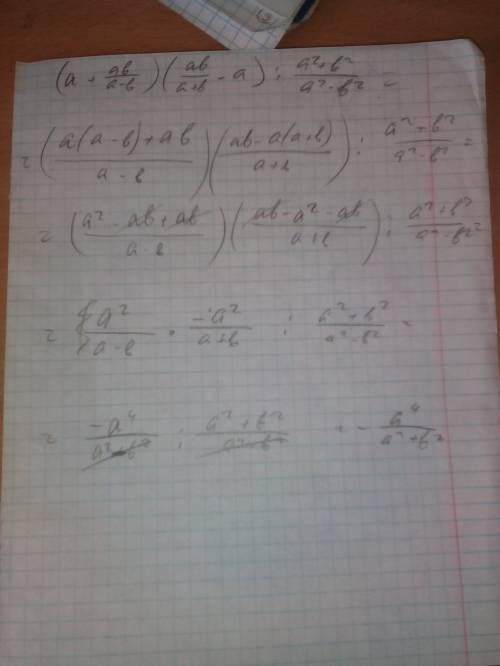 (a + ab/(a-b)) (ab/(a+b) - a) : (a²+b²)/(a²-b²) =
= ((a(a-b)+ab)/(a-b)) ((ab-a(a+b))/(a+b)) : (a²+b²)/(a²-b²) =
= ((a²-ab+ab)/(a-b)) ((ab-a²-ab)/(a+b)) : (a²+b²)/(a²-b²)
= a²/(a-b) · -a²/(a+b) : (a²+b²)/(a²-b²) =
= -a⁴/(a²-b²) : (a²+b²)/(a²-b²) = - a⁴/(a²+b²)